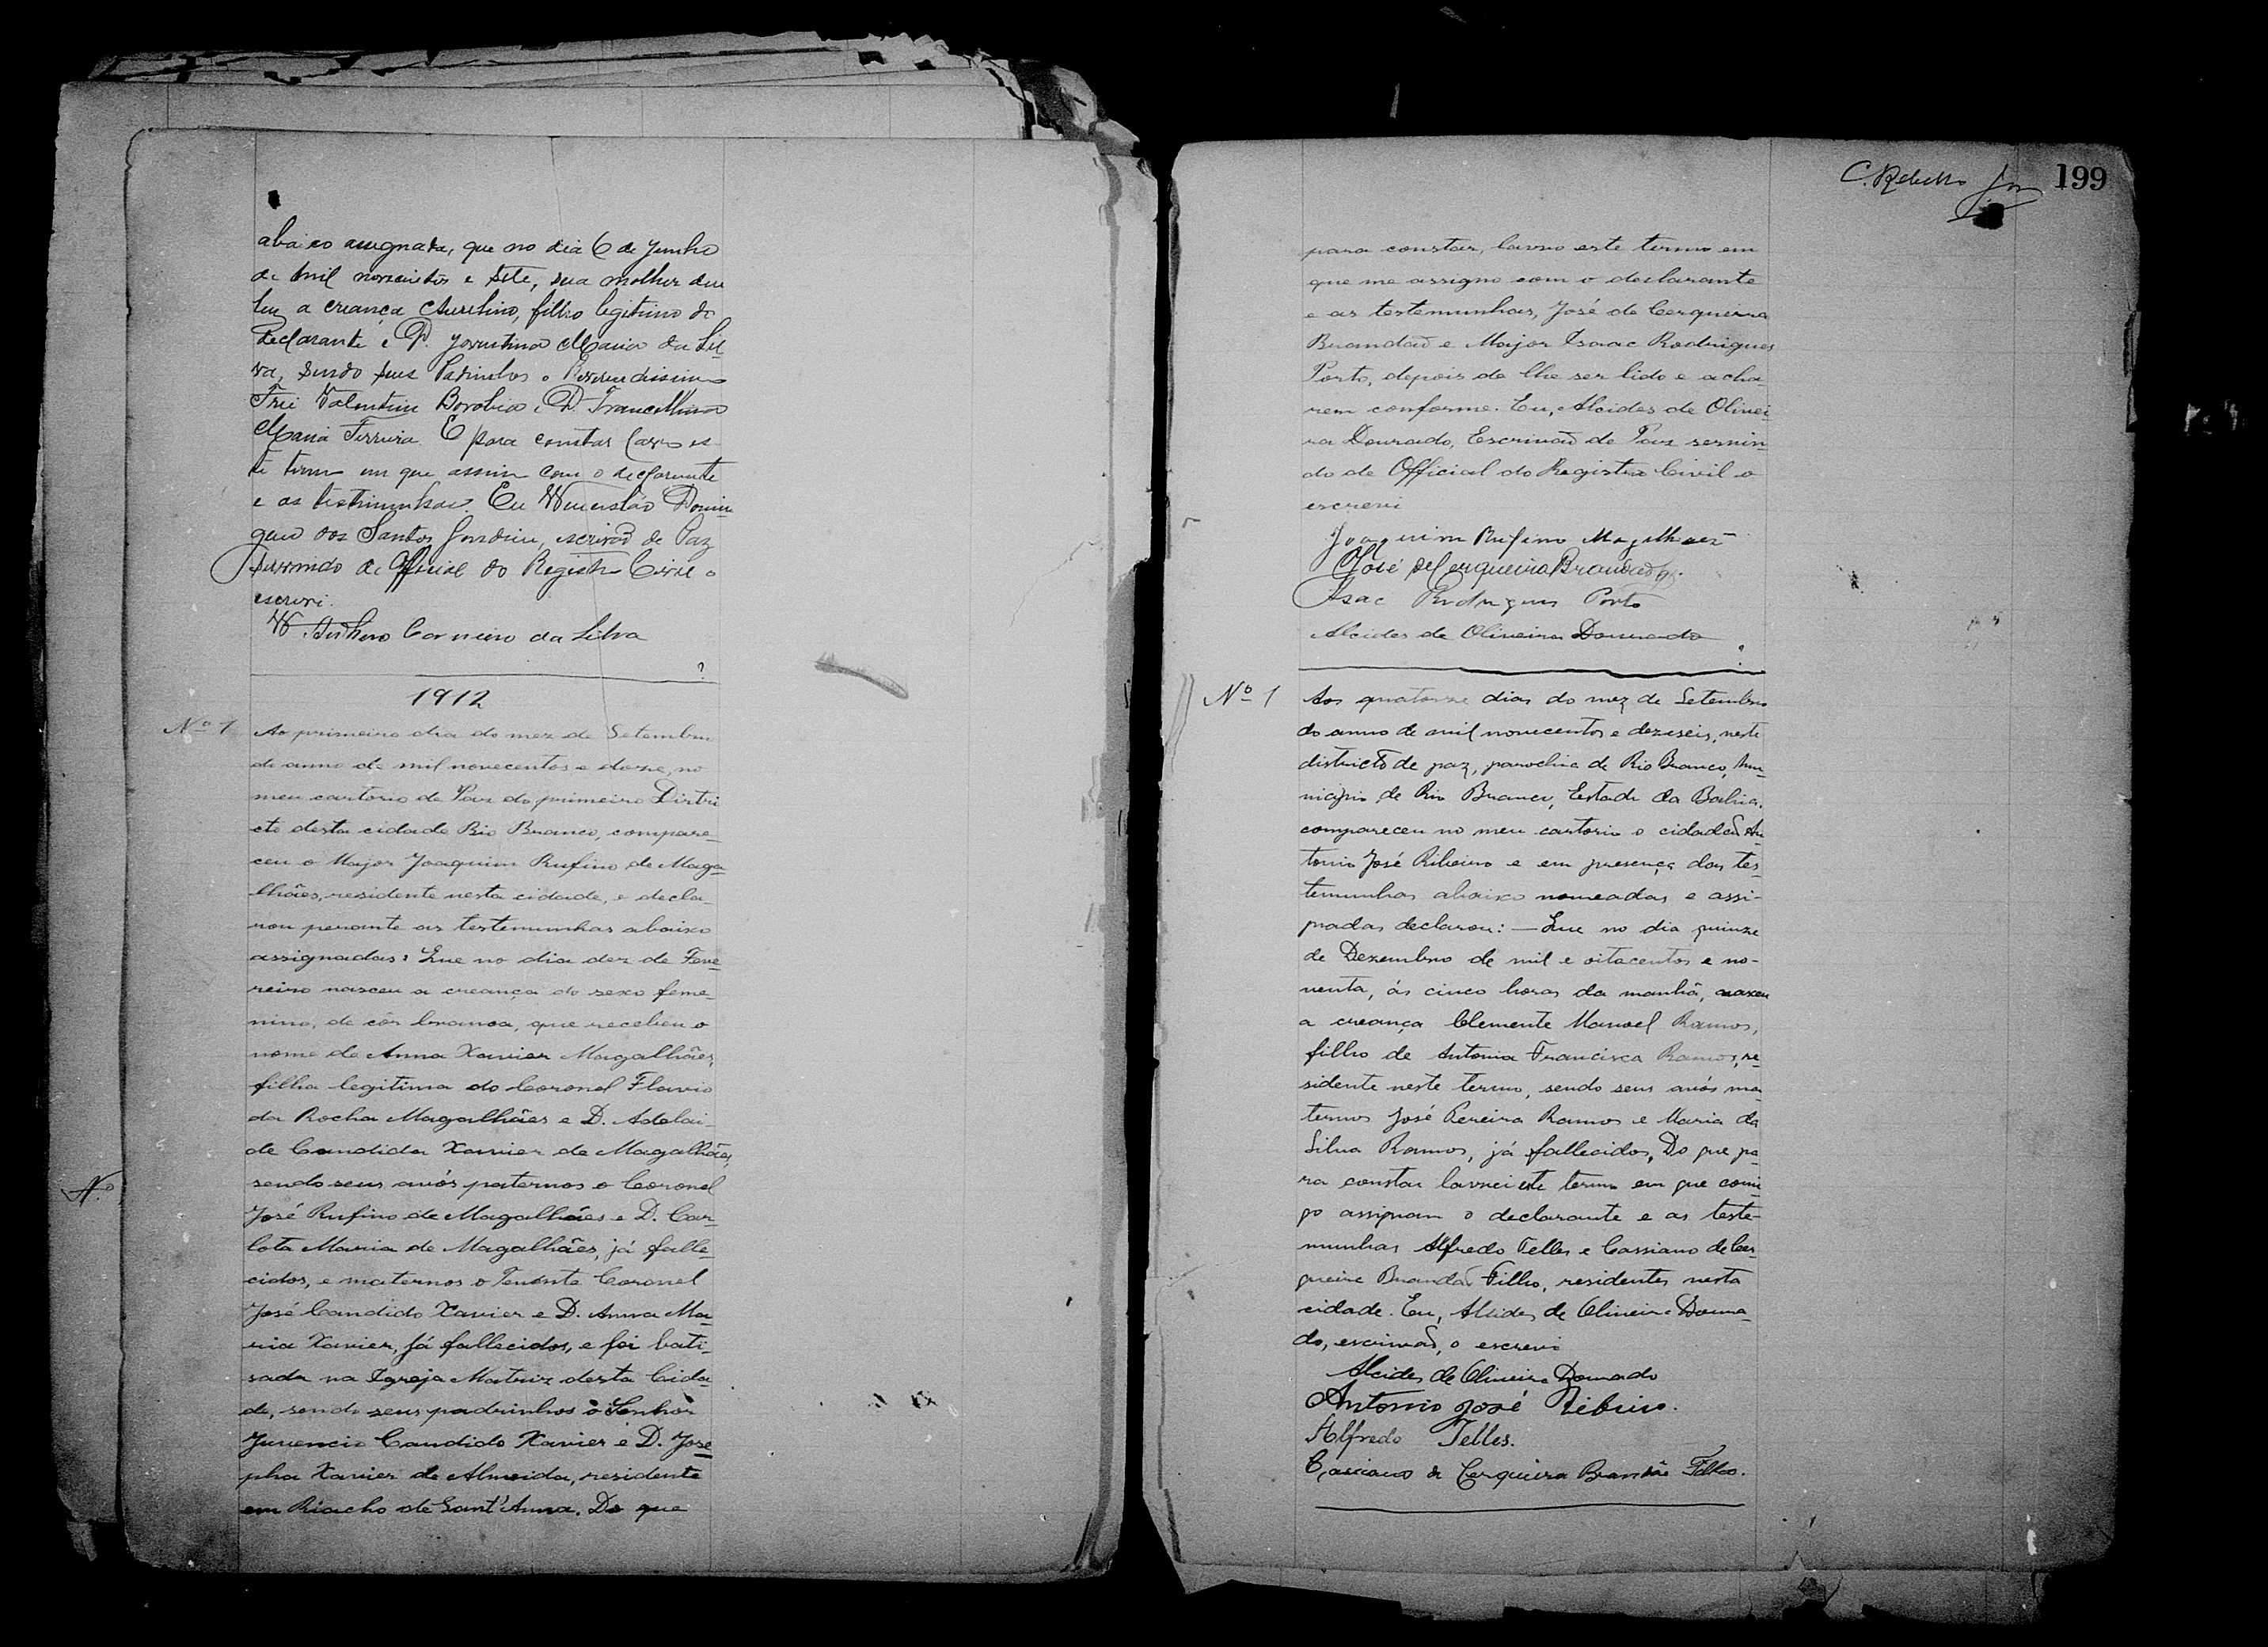 abaixo assignada, que no dia 6 de Junho
de mil novecentos e sete, sua molher deu
luz a criança Aurelino, filho legitimo do
Declarante e D. Jovintina Maria da Sil-
va, sendo seus Padinhos o Reverendissimo
Frei Valentim e D. Francellina
Maria Ferreira. E para constar lavro es-
te termo em que assim com o declarante
e as testimunhas. Eu Wencislão Domin
gues dos Santos Jondim, escrivão de Paz
servindo de Official do Registro Civil o
escrevi.
Carneiro da Silva
1912
Nº 1
Ao primeiro dia do mez de Setembro
do anno de mil novecentos e doze, no
meu cartorio de Paz do primeiro Distri
cto desta cidade Rio Branco, compare-
ceu o Major Joaquim Rufino de Maga-
lhães, residente nesta cidade, e decla-
rou perante as testemunhas abaixo
assignadas: Que no dia dez de Feve-
reiro nasceu a creança do sexo feme-
nino, de côr branca, que recebeu o
nome de Anna Xavier Magalhães,
filha legitima do Coronel Flavio
da Rocha Magalhães e D. Adelai-
de Candida Xavier de Magalhães,
sendo seus avós paternos o Coronel
José Rufino de Magalhães e D. Car-
lota Maria de Magalhães, já falle-
cidos, e maternos o Tenente Coronel
José Candido Xavier e D. Anna Ma-
ria Xavier, já fallecidos, e foi bati-
sada na Igreja Matriz desta Cida-
de, sendo seus padrinhos o Senhor
Juvencio Candido Xavier e D. Jose
pha Xavier de Almeida, residente
em Riacho de Sant'Anna. Do que
199
para constar, lavro este termo em
que me assigno com o declarante
e as testemunhas, José de Cerqueira
Brandão e Major Isaac Rodrigues
Porto, depois de lhe ser lido e acha-
rem conforme. Eu, Alcides de Olivei
ra Dourado, Escrivão de Paz servin-
do de Official do Registro Civil o
escrevi
Joaquim Rufino Magalhães
José de Cerqueira Brandão
Isac Rodrigues Porto
Alcides de Oliveira Dourado
Nº 1
Aos quatorze dias do mez de Setembro
do anno de mil novecentos e dezeseis, neste
districto de paz, parochia de Rio Branco, Mu-
nicipio de Rio Branco, Estado da Bahia,
compareceu no meu cartorio o cidadão An-
tonio José Ribeiro e em presença das tes-
temunhas abaixo nomeadas e assi-
gnadas declarou: — Que no dia quinze
de Dezembro de mil e oitacentos e no-
venta, ás cinco horas da manhã, nasceu
a creança Clemente Manoel Ramos,
filho de Antonia Francisca Ramos, re-
sidente neste termo, sendo seus avós ma-
ternos José Pereira Ramos e Maria da
Silva Ramos, já fallecidos. Do que pa-
ra constar lavrei este termo em que comi-
go assignam o declarante e as teste-
munhas Alfredo Telles e Cassiano de Cer-
queira Brandão Filho, residentes nesta
cidade. Eu, Alcides de Oliveira Doura-
do, escrivão, o escrevi
Alcides de Oliveira Dourado
Antonio José Ribeiro.
Alfredo Telles.
Cassiano de Cerqueira Brandão Filho.